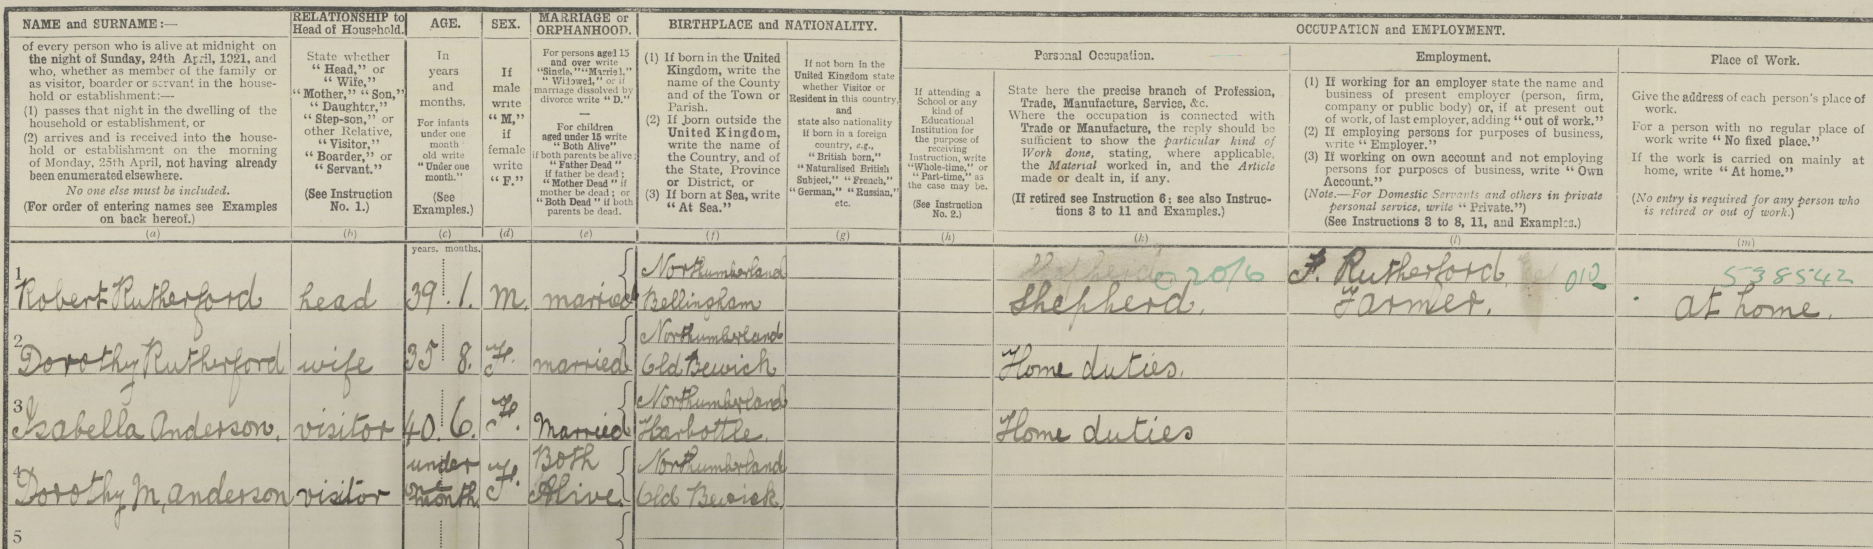 NAME and SURNAME :—
of every person who is alive at midnight on
the night of Sunday, 24th April, 1921, and
who, whether as member of the family or
as visitor, boarder or servant in the house-
hold or establishment:—
(1) passes that night in the dwelling of the
household or establishment, or
(2) arrives and is received into the house-
hold or establishment on the morning
of Monday, 25th April, not having already
been enumerated elsewhere.
No one else must be included.
(For order of entering names see Examples
on back hereof.)
(a)
RELATIONSHIP to
Head of Household.
State whether
"Head," or
"Wife,"
"Mother," "Son,"
"Daughter,"
"Step-son," or
other Relative,
"Visitor,"
"Boarder," or
"Servant."
(See Instruction
No. 1.)
(b)
AGE.
In
years
and
months.
For infants
under one
month
old write
"Under one
month."
(See
Examples.)
(c)
years. months.
SEX.
If
male
write
"M,"
if
female
write
"F."
(d)
MARRIAGE or
ORPHANHOOD.
For persons aged 15
and over write
"Single," "Married,"
"Widowed," or if
marriage dissolved by
divorce write "D."
—
For children
aged under 15 write
"Both Alive"
if both parents be alive;
"Father Dead"
if father be dead;
"Mother Dead" if
mother be dead; or
"Both Dead" if both
parents be dead.
(e)
BIRTHPLACE and NATIONALITY.
(1) If born in the United
Kingdom, write the
name of the County
and of the Town or
Parish.
(2) If born outside the
United Kingdom,
write the name of
the Country, and of
the State, Province
or District, or
(3) If born at Sea, write
"At Sea."
(f)
If not born in the
United Kingdom state
whether Visitor or
Resident in this country,
and
state also nationality
if born in a foreign
country, e.g.,
"British born,"
"Naturalised British
Subject," "French,"
"German," "Russian,"
etc.
(g)
OCCUPATION and EMPLOYMENT.
If attending a
School or any
kind of
Educational
Institution for
the purpose of
receiving
Instruction, write
"Whole-time," or
"Part-time," as
the case may be.
(See Instruction
No. 2.)
(h)
Personal Occupation.
State here the precise branch of Profession,
Trade, Manufacture, Service, &c.
Where the occupation is connected with
Trade or Manufacture, the reply should be
sufficient to show the particular kind of
Work done, stating, where applicable,
the Material worked in, and the Article
made or dealt in, if any.
(If retired see Instruction 6; see also Instruc-
tions 3 to 11 and Examples.)
(k)
Employment.
(1) If working for an employer state the name and
business of present employer (person, firm,
company or public body) or, if at present out
of work, of last employer, adding "out of work."
(2) If employing persons for purposes of business,
write "Employer."
(3) If working on own account and not employing
persons for purposes of business, write "Own
Account."
(Note.—For Domestic Servants and others in private
personal service, write "Private.")
(See Instructions 3 to 8, 11, and Examples.)
(l)
Place of Work.
Give the address of each person's place of
work.
For a person with no regular place of
work write "No fixed place."
If the work is carried on mainly at
home, write "At home."
(No entry is required for any person who
is retired or out of work.)
(m)
1 Northumberland Shepherd 020/6 F. Rutherford 012 538542
Robert Rutherford head 39 1. M. married Bellingham Shepherd. Farmer. At home.
2 Northumberland
Dorothy Rutherford wife 35 8. F. married Old Bewick Home duties.
3 Northumberland
Isabella Anderson. visitor 40. 6. F. Married Harbottle. Home duties
4 under Both Northumberland
Dorothy M. Anderson visitor one month F. Alive. Old Bewick.
5